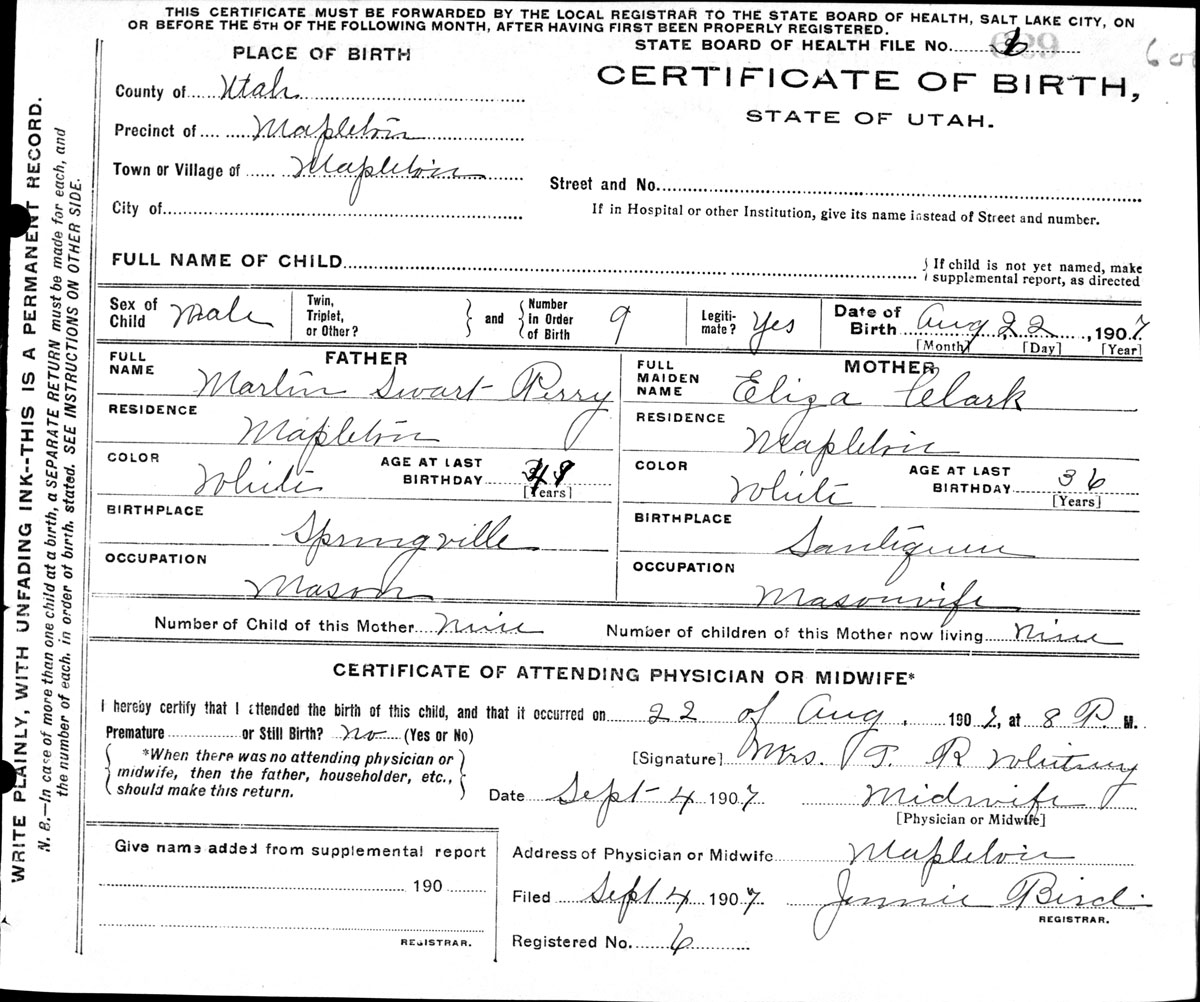 THIS CERTIFICATE MUST BE FORWARDED BY THE LOCAL REGISTRAR TO THE STATE BOARD OF HEALTH, SALT LAKE CITY, ON
OR BEFORE THE 5TH OF THE FOLLOWING MONTH, AFTER HAVING FIRST BEEN PROPERLY REGISTERED.
STATE BOARD OF HEALTH FILE No.
PLACE OF BIRTH
CERTIFICATE OF BIRTH,
STATE OF UTAH.
County of Utah
Precinct of Mapleton
Town or Village of Mapleton
Street and No.
City of
If in Hospital or other Institution, give its name instead of Street and number.
FULL NAME OF CHILD
{ If child is not yet named, make
supplemental report, as directed
Sex of Child Male Twin, Triplet, or Other? } and { Number in Order of Birth 9 Legiti-mate? Yes Date of Birth Aug 22, 1907
[Month] [Day] [Year]
FATHER MOTHER
FULL NAME Martin Swart Perry FULL MAIDEN NAME Eliza Clark
RESIDENCE Mapleton RESIDENCE Mapleton
COLOR White AGE AT LAST BIRTHDAY [Years] COLOR White AGE AT LAST BIRTHDAY 36 [Years]
BIRTHPLACE Springville BIRTHPLACE
OCCUPATION Mason OCCUPATION Masonwife
Number of Child of this Mother Nine Number of children of this Mother now living Nine
CERTIFICATE OF ATTENDING PHYSICIAN OR MIDWIFE*
I hereby certify that I attended the birth of this child, and that it occurred on 22 of Aug. 1907, at 8 P M.
Premature or Still Birth? No (Yes or No)
{ *When there was no attending physician or
midwife, then the father, householder, etc.,
should make this return. }
[Signature] Mrs. T. R Whitney
Date Sept 4 1907 Midwife
[Physician or Midwife]
Give name added from supplemental report
190
REGISTRAR.
Address of Physician or Midwife Mapleton
Filed Sept 4 1907 Jennie Bird
REGISTRAR.
Registered No. 6
WRITE PLAINLY, WITH UNFADING INK--THIS IS A PERMANENT RECORD.
N. B.—In case of more than one child at a birth, a SEPARATE RETURN must be made for each, and
the number of each, in order of birth, stated. SEE INSTRUCTIONS ON OTHER SIDE.